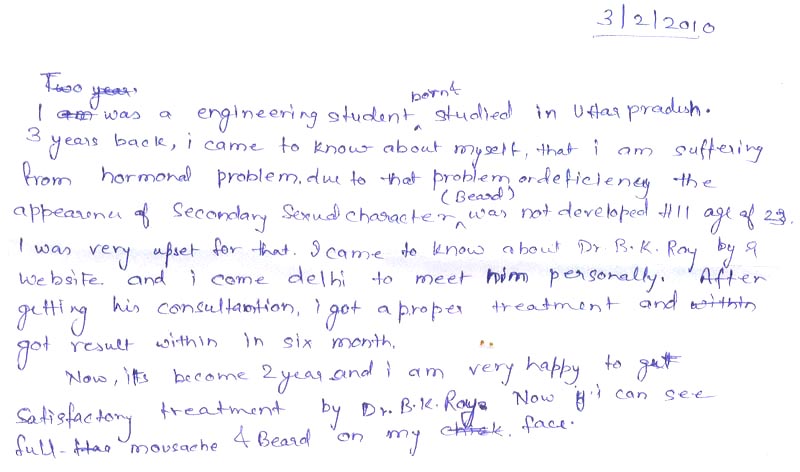 3/2/2010
Two year.
born &
I am was a engineering student, studied in Uttar pradesh.
3 years back, i came to know about myself, that i am suffering
from hormonal problem. due to that problem or deficiency the
(Beard)
appearence of Secondary Sexual character, was not developed till age of 23.
I was very upset for that. I came to know about Dr. B.K. Roy by a
website. and i come delhi to meet him personally. After
getting his consultantion, i got a proper treatment and within
got result within in six month.
Now, its become 2 year and i am very happy to get
satisfactory treatment by Dr. B.K. Roy. Now i can see
full- mousache & Beard on my cheek. face.